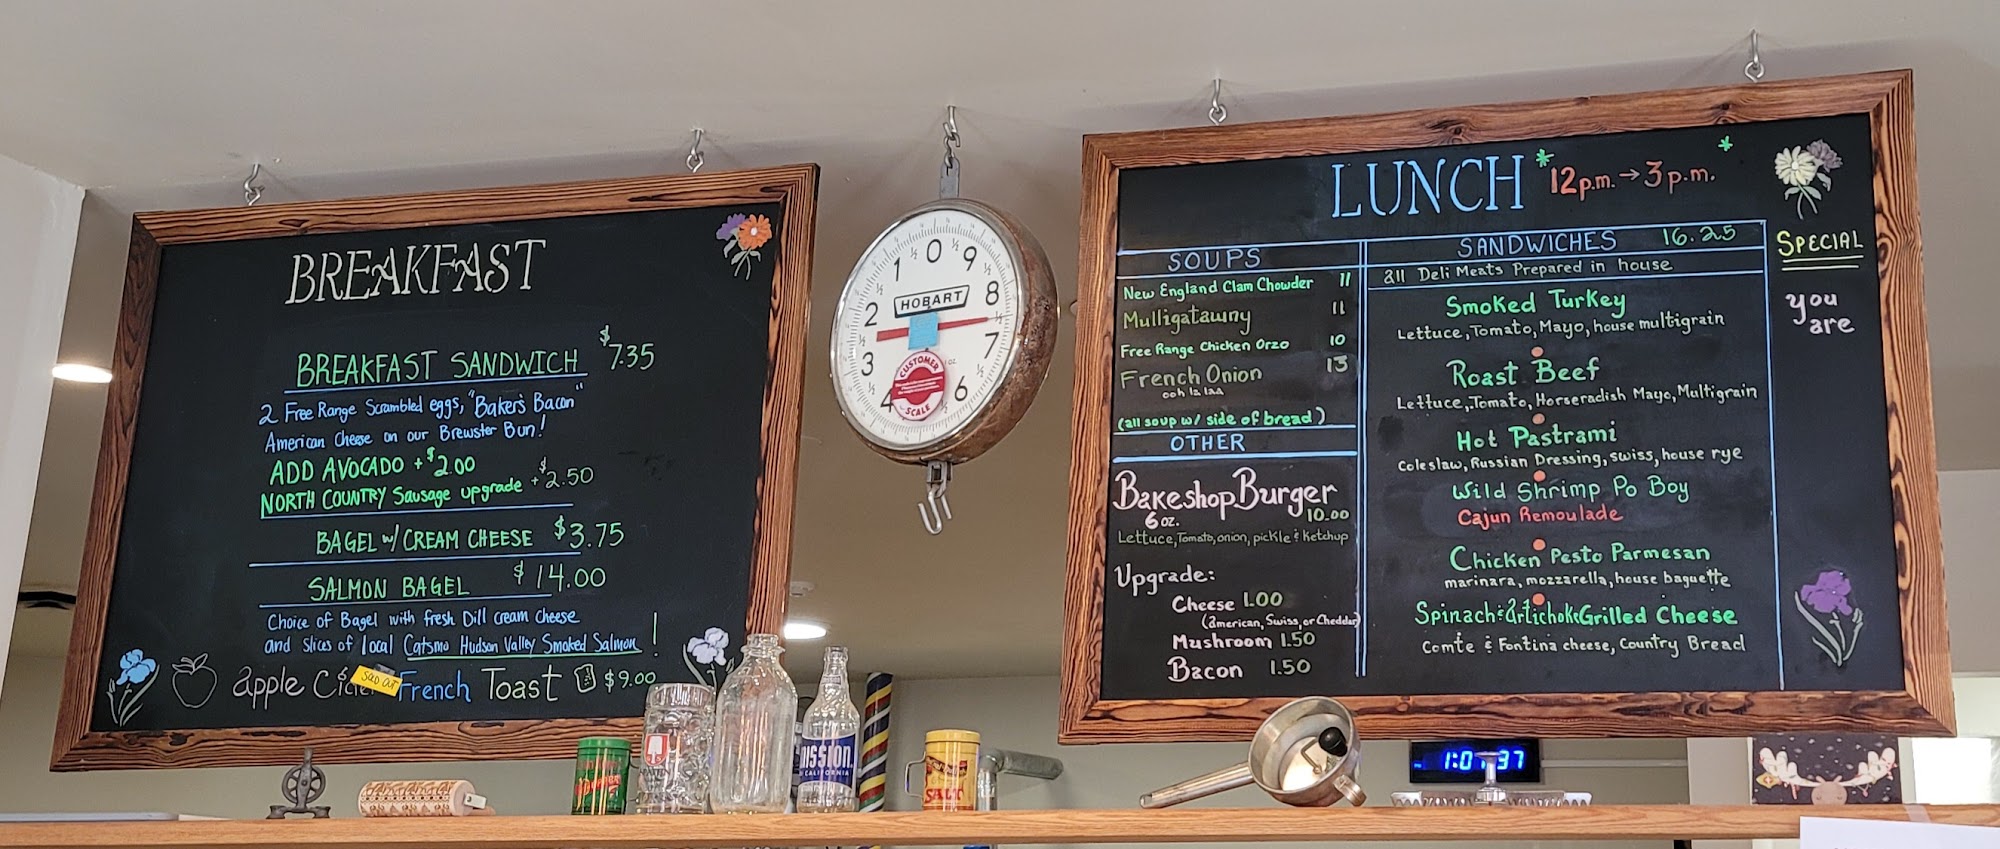 BREAKFAST
BREAKFAST SANDWICH $7.35
2 Free Range Scrambled eggs, "Baker's Bacon"
American Cheese on our Brewster Bun!
ADD AVOCADO + $2.00
NORTH COUNTRY Sausage upgrade + $2.50
BAGEL w/ CREAM CHEESE $3.75
SALMON BAGEL $14.00
Choice of Bagel with fresh Dill cream cheese
and slices of local Catsmo Hudson Valley Smoked Salmon!
apple SOLD OUT French Toast $9.00
0
9
8
7
6
4
3
2
1
½
HOBART
CUSTOMER
SCALE
LUNCH * 12p.m. → 3p.m. *
SOUPS
New England Clam Chowder 11
Mulligatawny 11
Free Range Chicken Orzo 10
French Onion 13
ooh la laa
(all soup w/ side of bread)
OTHER
Bakeshop Burger
6 oz. 10.00
Lettuce, Tomato, onion, pickle & Ketchup
Upgrade:
Cheese 1.00
(american, Swiss, or Cheddar)
Mushroom 1.50
Bacon 1.50
SANDWICHES 16.25
all Deli Meats Prepared in house
Smoked Turkey
Lettuce, Tomato, Mayo, house multigrain
Roast Beef
Lettuce, Tomato, Horseradish Mayo, Multigrain
Hot Pastrami
Coleslaw, Russian Dressing, swiss, house rye
Wild Shrimp Po Boy
Cajun Remoulade
Chicken Pesto Parmesan
marinara, mozzarella, house baguette
Spinach & artichoke Grilled Cheese
Comte & Fontina cheese, Country Bread
SPECIAL
you
are
MISSION
CALIFORNIA
SALT